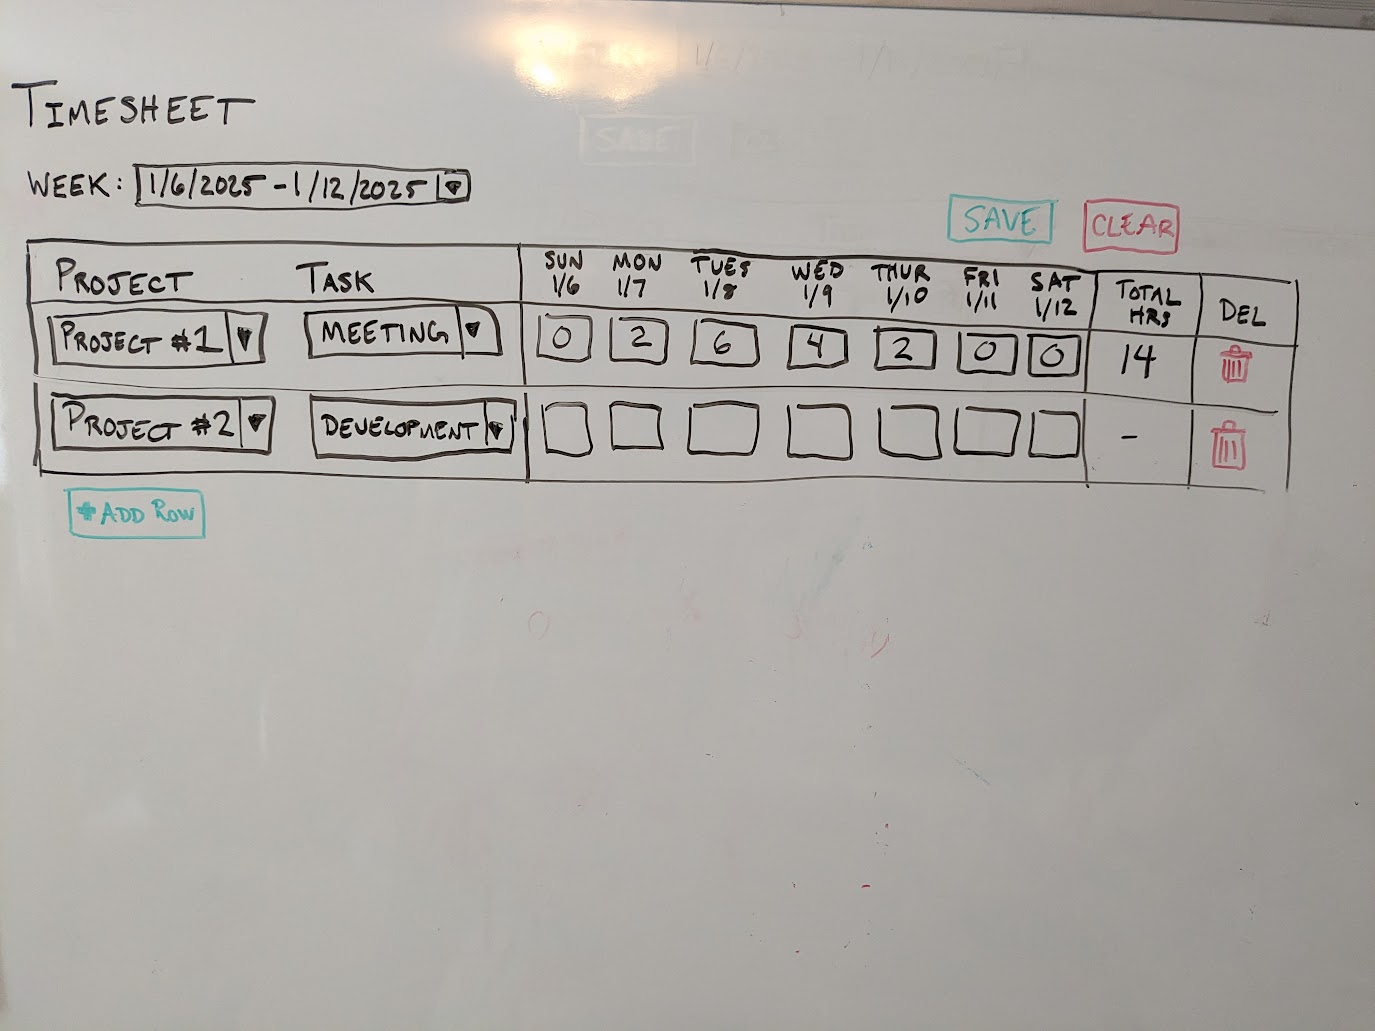 TIMESHEET
WEEK: 1/6/2025 - 1/12/2025
SAVE CLEAR
PROJECT TASK SUN 1/6 MON 1/7 TUES 1/8 WED 1/9 THUR 1/10 FRI 1/11 SAT 1/12 TOTAL HRS DEL
PROJECT #1 MEETING 0 2 6 4 2 0 0 14
PROJECT #2 DEVELOPMENT -
+ ADD ROW